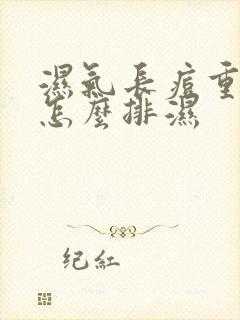 濕氣長痘重
怎麼排濕
纪紅